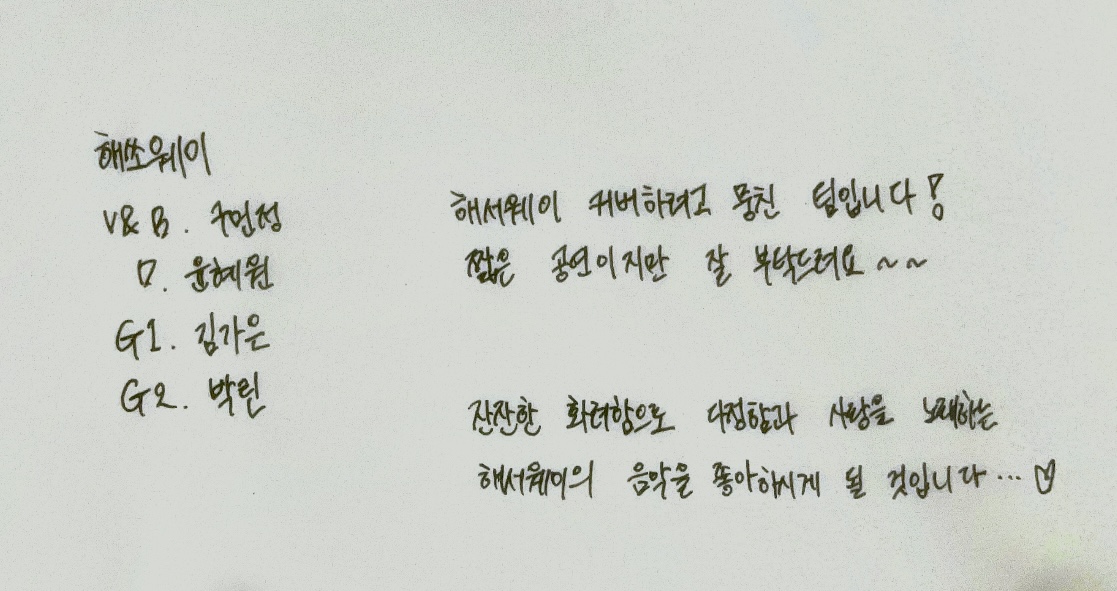 해쏘웨이
V&B. 구민정
D. 윤혜원
G1. 김가은
G2. 박린
해서웨이 커버하려고 뭉친 팀입니다!
짧은 공연이지만 잘 부탁드려요~~
잔잔한 화려함으로 다정함과 사랑을 노래하는
해서웨이의 음악을 좋아하시게 될 것입니다...♡